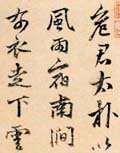 危君太朴以
風雨宿南澗
衣走下雲